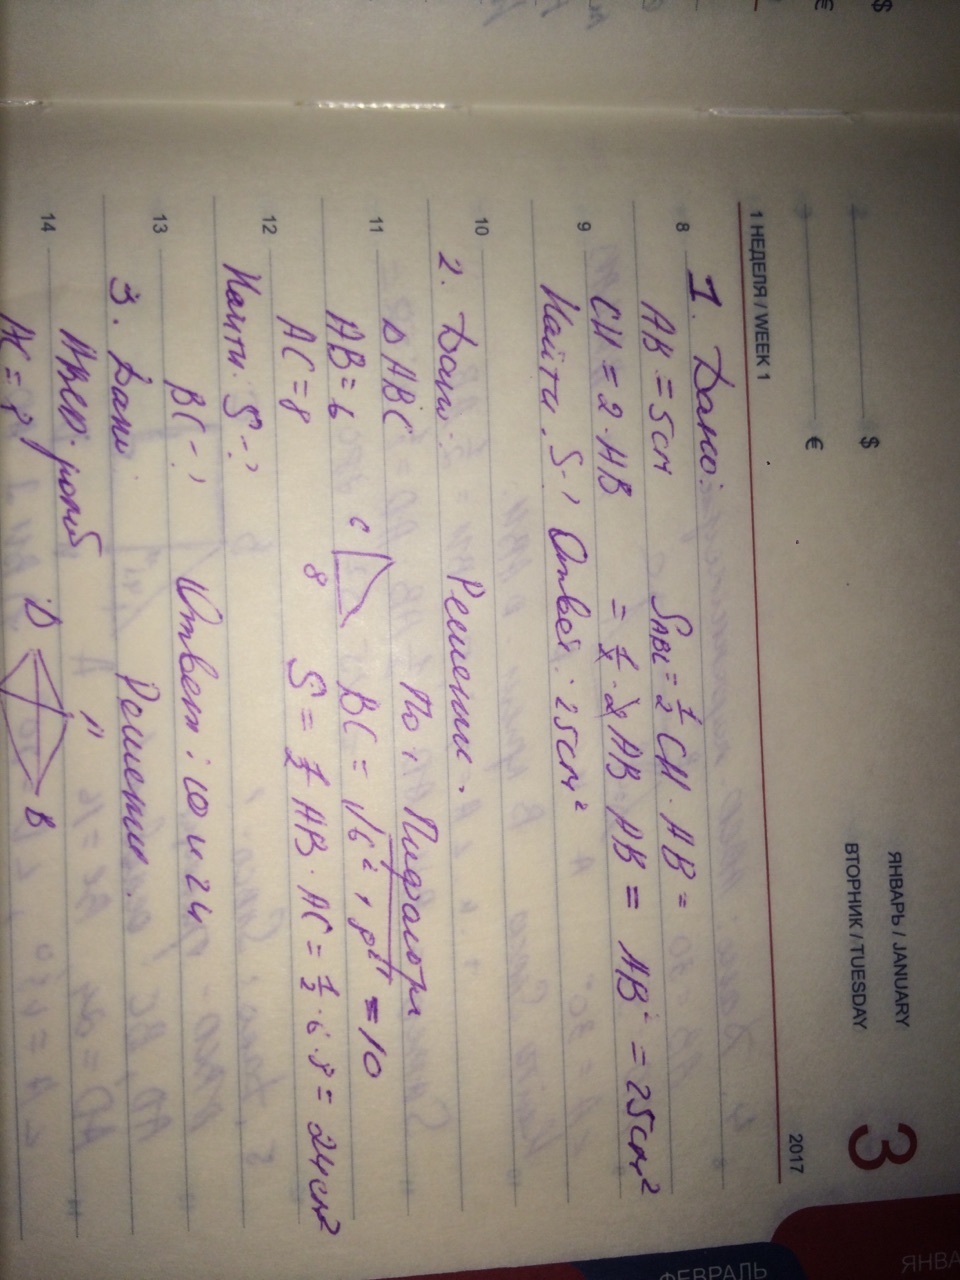 $
€
ЯНВАРЬ / JANUARY
ВТОРНИК / TUESDAY
3
1 НЕДЕЛЯ / WEEK 1
2017
8
1. Дано:
AB = 5см SABC = 1/2 CH · AB =
CH = 2 · AB = 1/2 · 2 AB · AB = AB² = 25см²
9
Найти. S-? Ответ: 25см²
10
2. Дано: Решение.
Δ ABC По т. Пифагора
11
AB = 6 C BC = √6² + 8² = 10
AC = 8 8 S = 1/2 AB · AC = 1/2 · 6 · 8 = 24см²
12
Найти. S-?
BC-? Ответ: 10 и 24
13
3. Дано Решение.
ромб
14
AC = D B
ФЕВРАЛЬ
ЯНВА